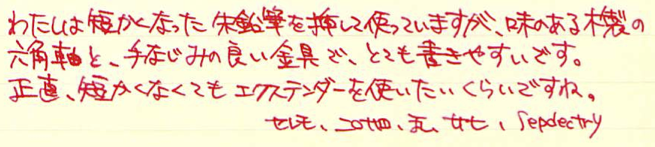 わたしは短かくなった朱鉛筆を挿して使っていますが、味のある木製の
六角軸と、手なじみの良い金具で、とても書きやすいです。
正直、短かくなくてもエクステンダーを使いたいくらいですね。